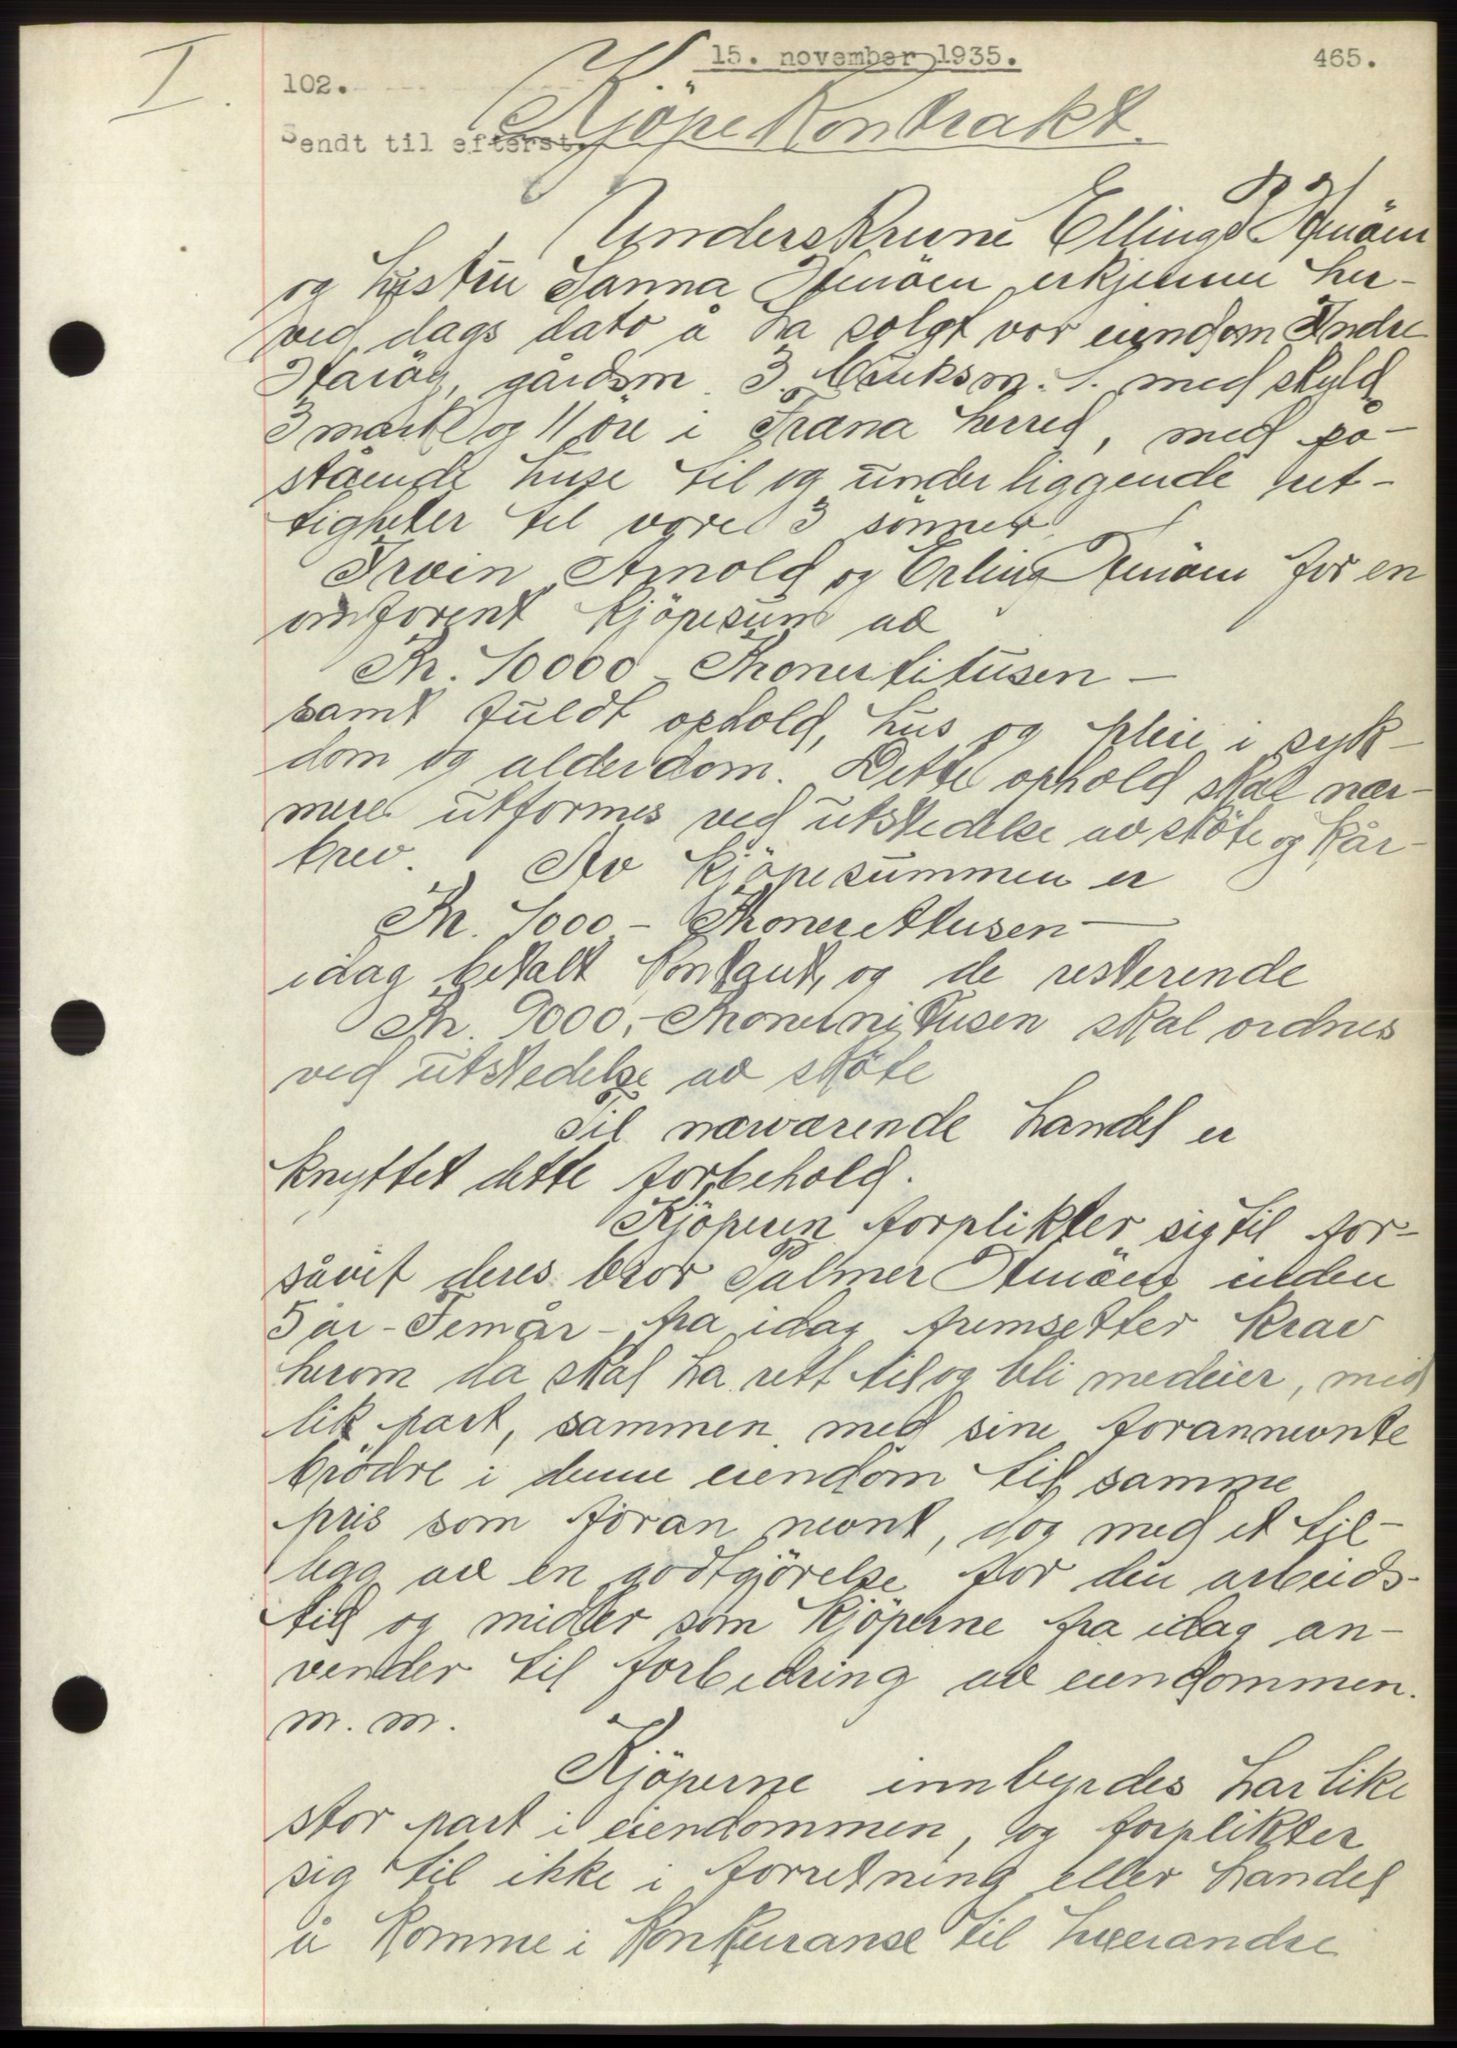 I.
15. november 1935.
465.
102.
Kjöpekontrakt.
Sendt til efterst.
Underskrevne Elling
og hustru Sanna Havöen erkjenner her-
ved dags dato å ha solgt vor eiendom Indre
Harøy, gårdsnr. 3. bruksnr. 1. med skyld
3 mark og 11 öre i Fræna herred, med på-
stående huse til og underliggende ret-
tigheter til vore 3 sønner
Irvin, Arnold og Erling Havöen for en
omforent kjöpesum av
Kr. 10000 - Kroner titusen -
samt fuldt ophold, hus og pleie i syk-
dom og alderdom. Dette ophold skal nær-
mere utformes ved utstedelse av sköte og kår-
brev. Av kjöpesummen er
Kr. 1000 - Kroner ettusen -
idag betalt kontant, og de resterende
Kr. 9000,- Kroner nitusen skal ordnes
ved utstedelse av sköte
Til nærværende handel er
knyttet dette forbehold.
Kjöperen forplikter sig til for-
såvit deres bror Palmer Havöen inden
5 år - Fem år - fra idag fremsetter krav
herom da skal ha rett til og bli medeier, med
lik part, sammen med sine forannevnte
brødre i denne eiendom til samme
pris som foran nevnt, dog med et til-
legg av en godtgjörelse for den arbeids-
tid og midler som kjöperne fra idag an-
vender til forbedring av eiendommen.
m. m.
Kjöperne innbyrdes har like
stor part i eiendommen, og forplikter
sig til ikke i forretning eller handel
å komme i konkurranse til hverandre